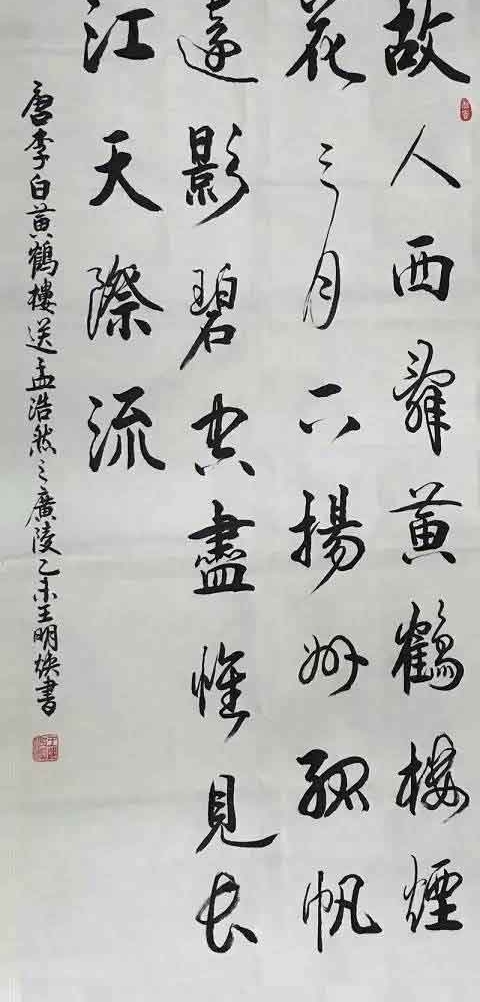 故人西辭黃鶴樓煙
花三月下揚州孤帆
遠影碧空盡惟見長
江天際流
唐李白黃鶴樓送孟浩然之廣陵乙未王明煥書